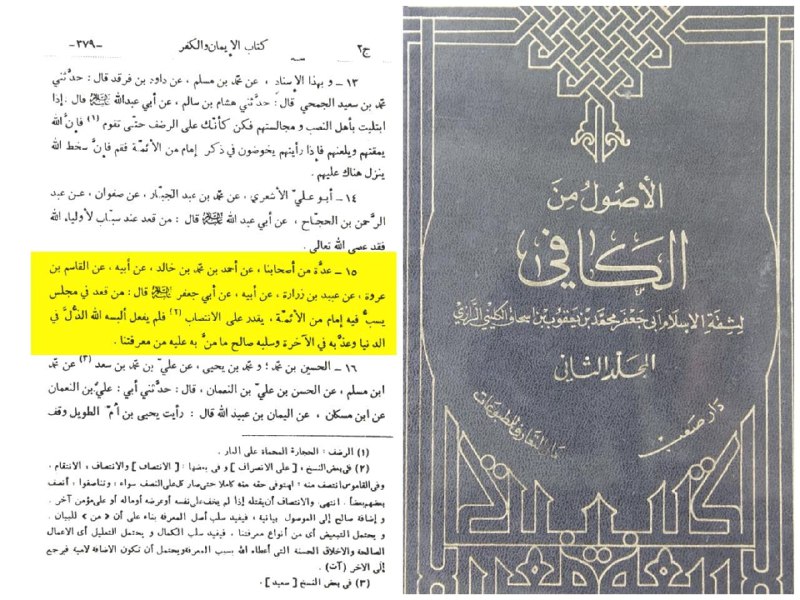 ج٢
كتاب الإيمان والكفر
-٣٧٩-
١٣ ـ و بهذا الإسناد ، عن محمد بن مسلم ، عن داود بن فرقد قال : حدّثني
محمد بن سعيد الجمحي قال : حدّثني هشام بن سالم ، عن أبي عبدالله قال : إذا
ابتليت بأهل النصب و مجالستهم فكن كأنّك على الرضف حتّى تقوم (١) فإنّ الله
يمقتهم ويلعنهم فإذا رأيتهم يخوضون في ذكر إمام من الأئمّة فقم فإنّ سخط الله
ينزل هناك عليهم .
١٤ ـ أبو عليّ الأشعري ، عن محمد بن عبد الجبّار ، عن صفوان ، عن عبد
الرّحمن بن الحجّاج ، عن أبي عبد الله قال : من قعد عند سبّاب لأولياء الله
فقد عصى الله تعالى .
١٥ ـ عدّة من أصحابنا ، عن أحمد بن محمد بن خالد ، عن أبيه ، عن القاسم بن
عروة ، عن عبيد بن زرارة ، عن أبيه ، عن أبي جعفر قال : من قعد في مجلس
يسبّ فيه إمام من الأئمّة ، يقدر على الانتصاب (٢) فلم يفعل ألبسه الله الذّلّ في
الدنيا وعذّبه في الآخرة وسلبه صالح ما منّ به عليه من معرفتنا .
١٦ ـ الحسين بن محمد ؛ و محمد بن يحيى ، عن عليّ بن محمد بن سعد (٣) عن محمد
ابن مسلم ، عن الحسن بن عليّ بن النعمان ، قال : حدّثني أبي : عليّ بن النعمان
عن ابن مسكان ، عن اليمان بن عبيد الله قال : رأيت يحيى بن أمّ الطويل وقف
(١) الرضف : الحجارة المحماة على النار .
(٢) في بعض النسخ [ على الانصراف ] و في بعضها : [ الانتصاف ] والانتصاف ، الانتقام ،
وفي القاموس انتصف منه : استوفى حقه منه كاملا حتى صار كل على النصف سواء ؛ وتناصفوا : أنصف
بعضهم بعضاً . انتهى. والانتصاف أن يقتله إذا لم يخف على نفسه أو عرضه أو ماله أو على مؤمن آخر .
و إضافة صالح إلى الموصول بيانية ، فيفيد سلب أصل المعرفة بناء على أن « من » للبيان .
و يحتمل التبعيض أي من أنواع معرفتنا ، فيفيد سلب الكمال و يحتمل التعليل أي الاعمال
الصالحة والاخلاق الحسنة التي أعطاه الله بسبب المعرفة ويحتمل أن تكون الاضافة لامية فيرجع
إلى الاخر (آت) .
(٣) في بعض النسخ [ سعيد ] .
الأصول من
الكافي
لثقة الإسلام أبي جعفر محمد بن يعقوب بن إسحاق الكليني الرازي
المجلد الثاني
دار صعب
دار التعارف للمطبوعات